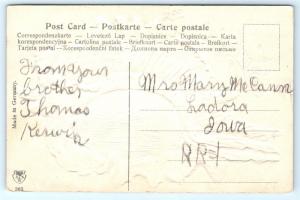 Post Card – Postkarte – Carte postale
Correspondenzkarte – Levelező Lap – Dopisnice – Karta
korespondencyjna – Cartolina postale – Briefkaart – Brefkort –
Tarjeta postal – Korrespondentní lístek – Открытое письмо
From your
brother
Thomas
Kerwin
Mrs Mary McCann
Ladora
Iowa
RR 1
Made in Germany